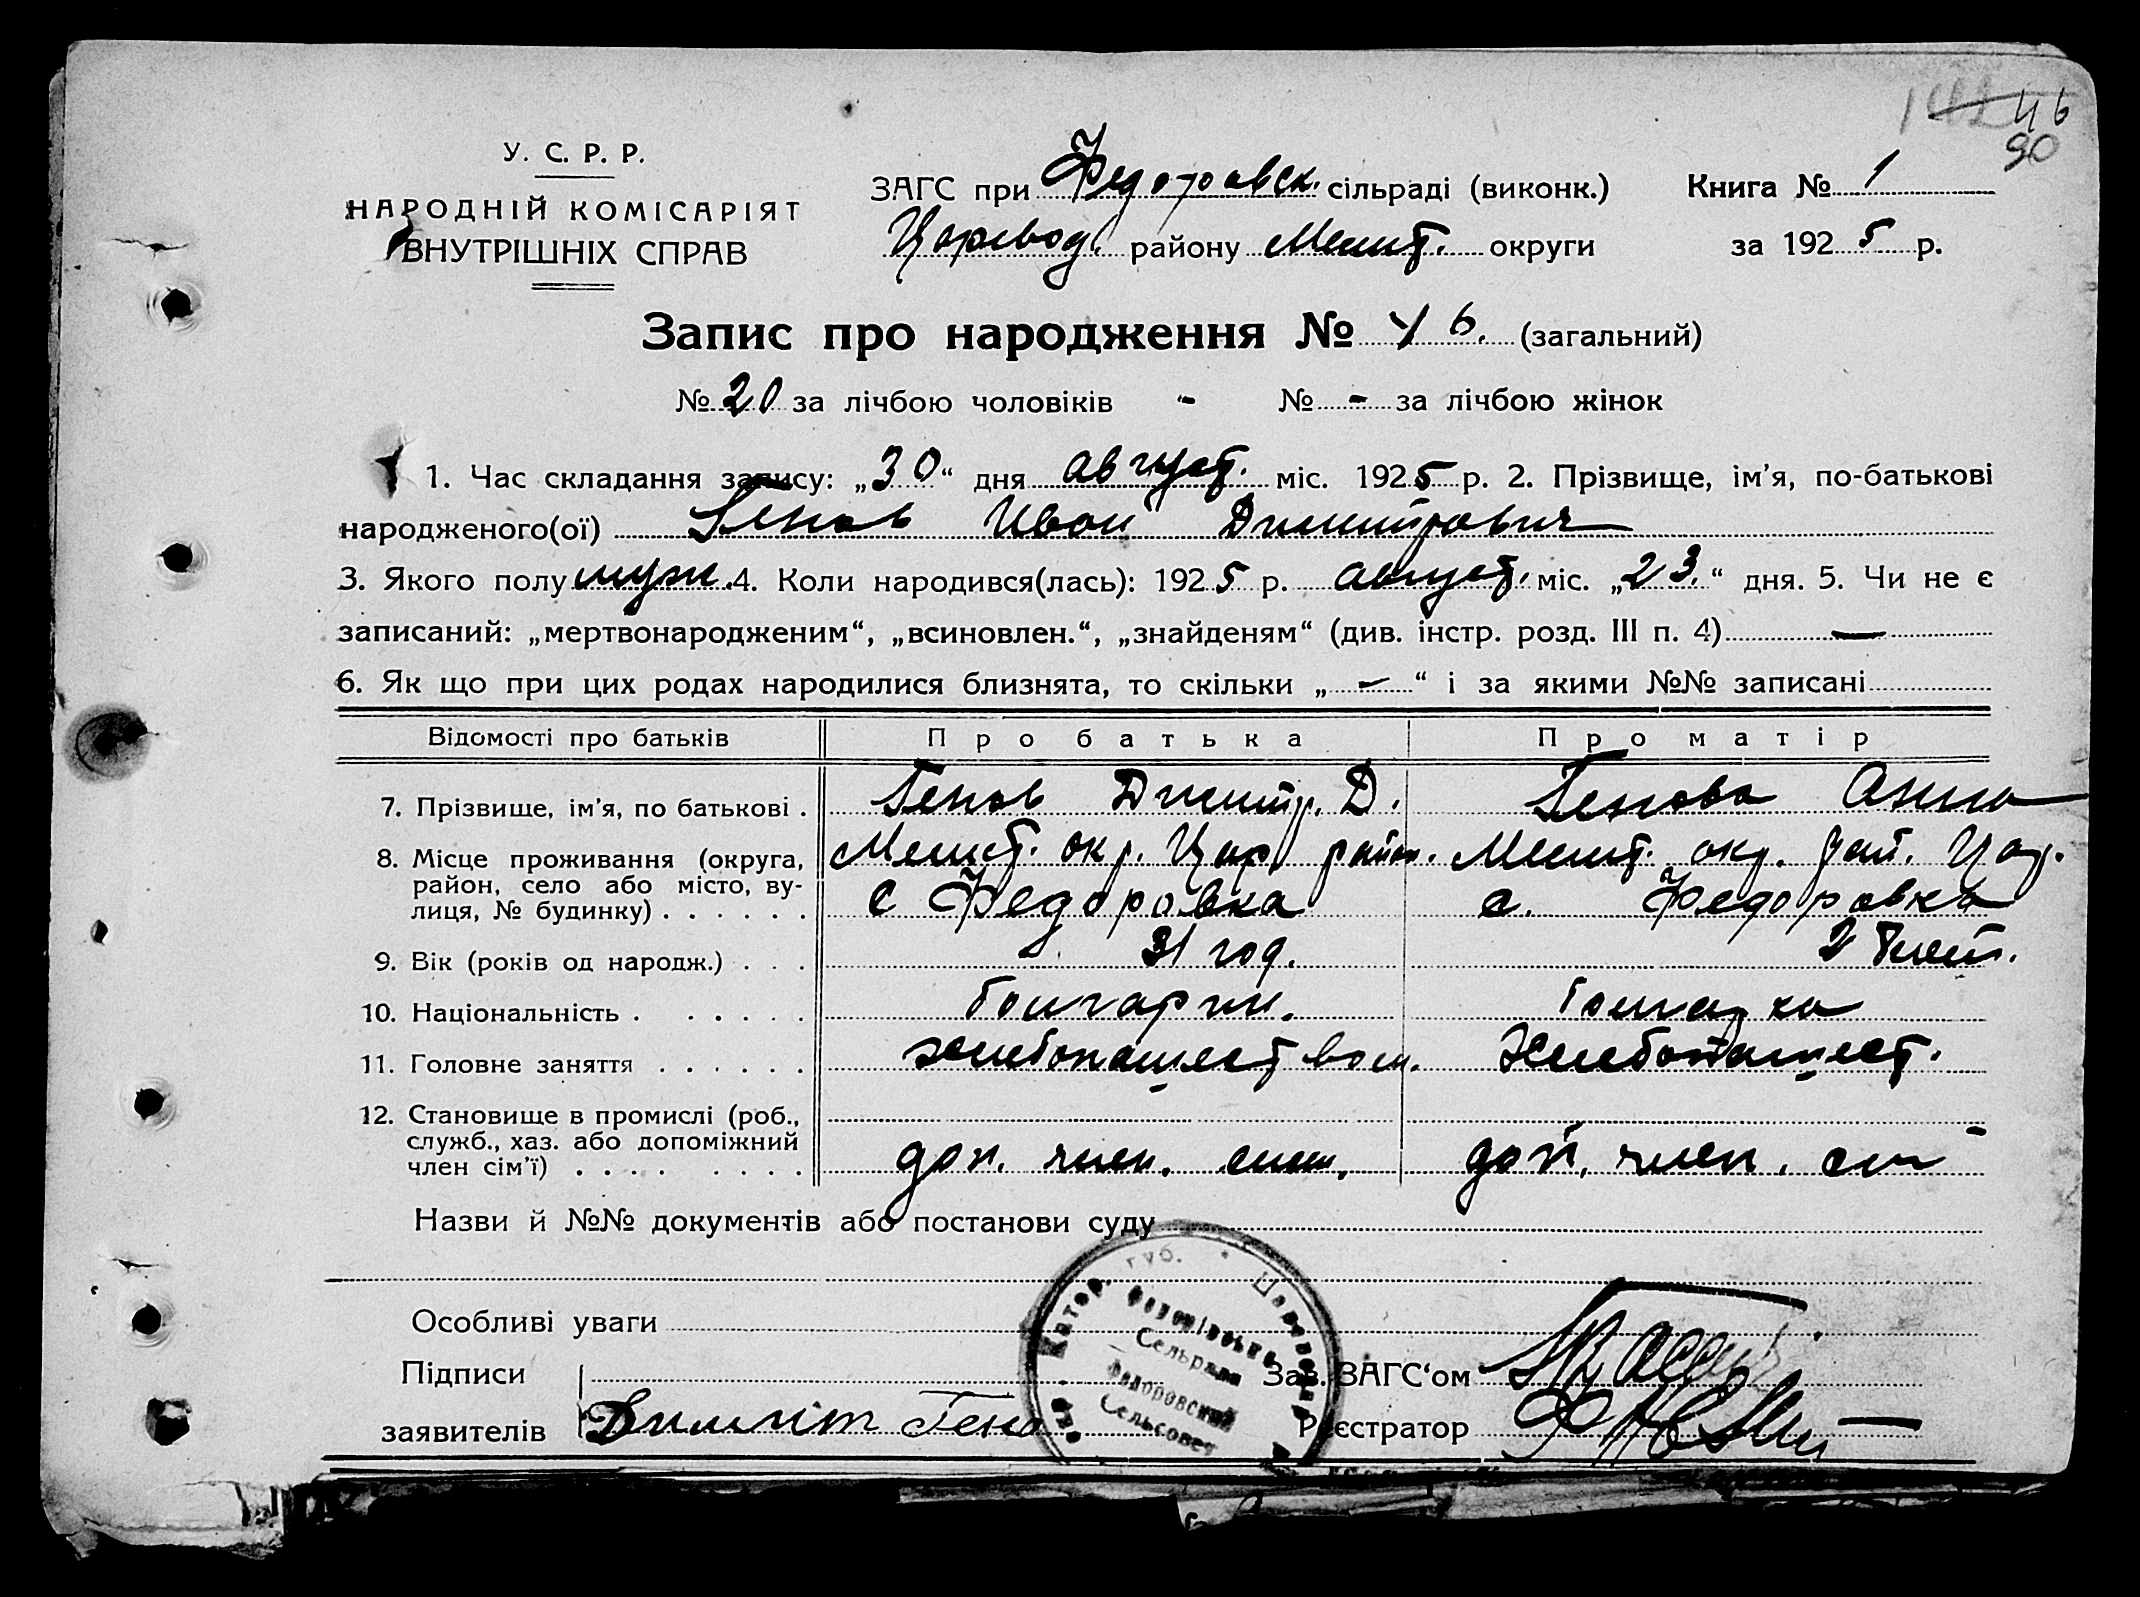 46
90
У. С. Р. Р.
НАРОДНІЙ КОМІСАРІЯТ
ВНУТРІШНІХ СПРАВ
ЗАГС при Федоровск. сільраді (виконк.) Книга № 1
Царевод. району Мелит. округи за 1925 р.
Запис про народження № 46. (загальний)
№ 20 за лічбою чоловіків - № - за лічбою жінок
1. Час складання запису: „30“ дня август. міс. 1925 р. 2. Прізвище, ім'я, по-батькові
народженого(ої) Генов Иван Димитрович
3. Якого полу муж. 4. Коли народився(лась): 1925 р. август. міс. „23.“ дня. 5. Чи не є
записаний: „мертвонародженим“, „всиновлен.“, „знайденям“ (див. інстр. розд. III п. 4) —
6. Як що при цих родах народилися близнята, то скільки „-“ і за якими №№ записані
Відомості про батьків Про батька Про матір
7. Прізвище, ім'я, по батькові . Генов Димитр. Д. Генова Анна
8. Місце проживання (округа, Мелит. окр. Цар район. Мелит. окр. рай. Цар.
район, село або місто, ву-
лиця, № будинку) . . . . . . с Федоровка с. Федоровка
9. Вік (років од народж.) . . . 31 год.
10. Національність . . . . . . болгарин. болгарка
11. Головне заняття . . . . . . хлебопашеством. Хлебопашест.
12. Становище в промислі (роб.,
служб., хаз. або допоміжний
член сім'ї) . . . . . . . . доп. член. сем. доп. член. сем
Назви й №№ документів або постанови суду
Особливі уваги
Підписи Зав. ЗАГС‘ом
заявителів Димит Гено Реєстратор
губ.
Сельрада
Федоровский
Сельсовет